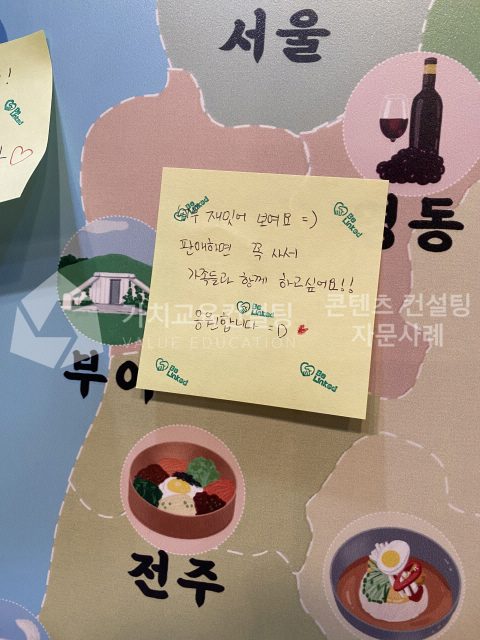 서울
!
Be Linked
♡
Be Linked
Be Linked
재밌어 보여요 =)
판매하면 꼭 사서
가족들과 함께 하고싶어요!!
Be Linked
응원합니다 =D ♥
Be Linked
Be Linked
동
가치교육컨설팅
VALUE EDUCATION
콘텐츠 컨설팅
자문사례
부여
전주